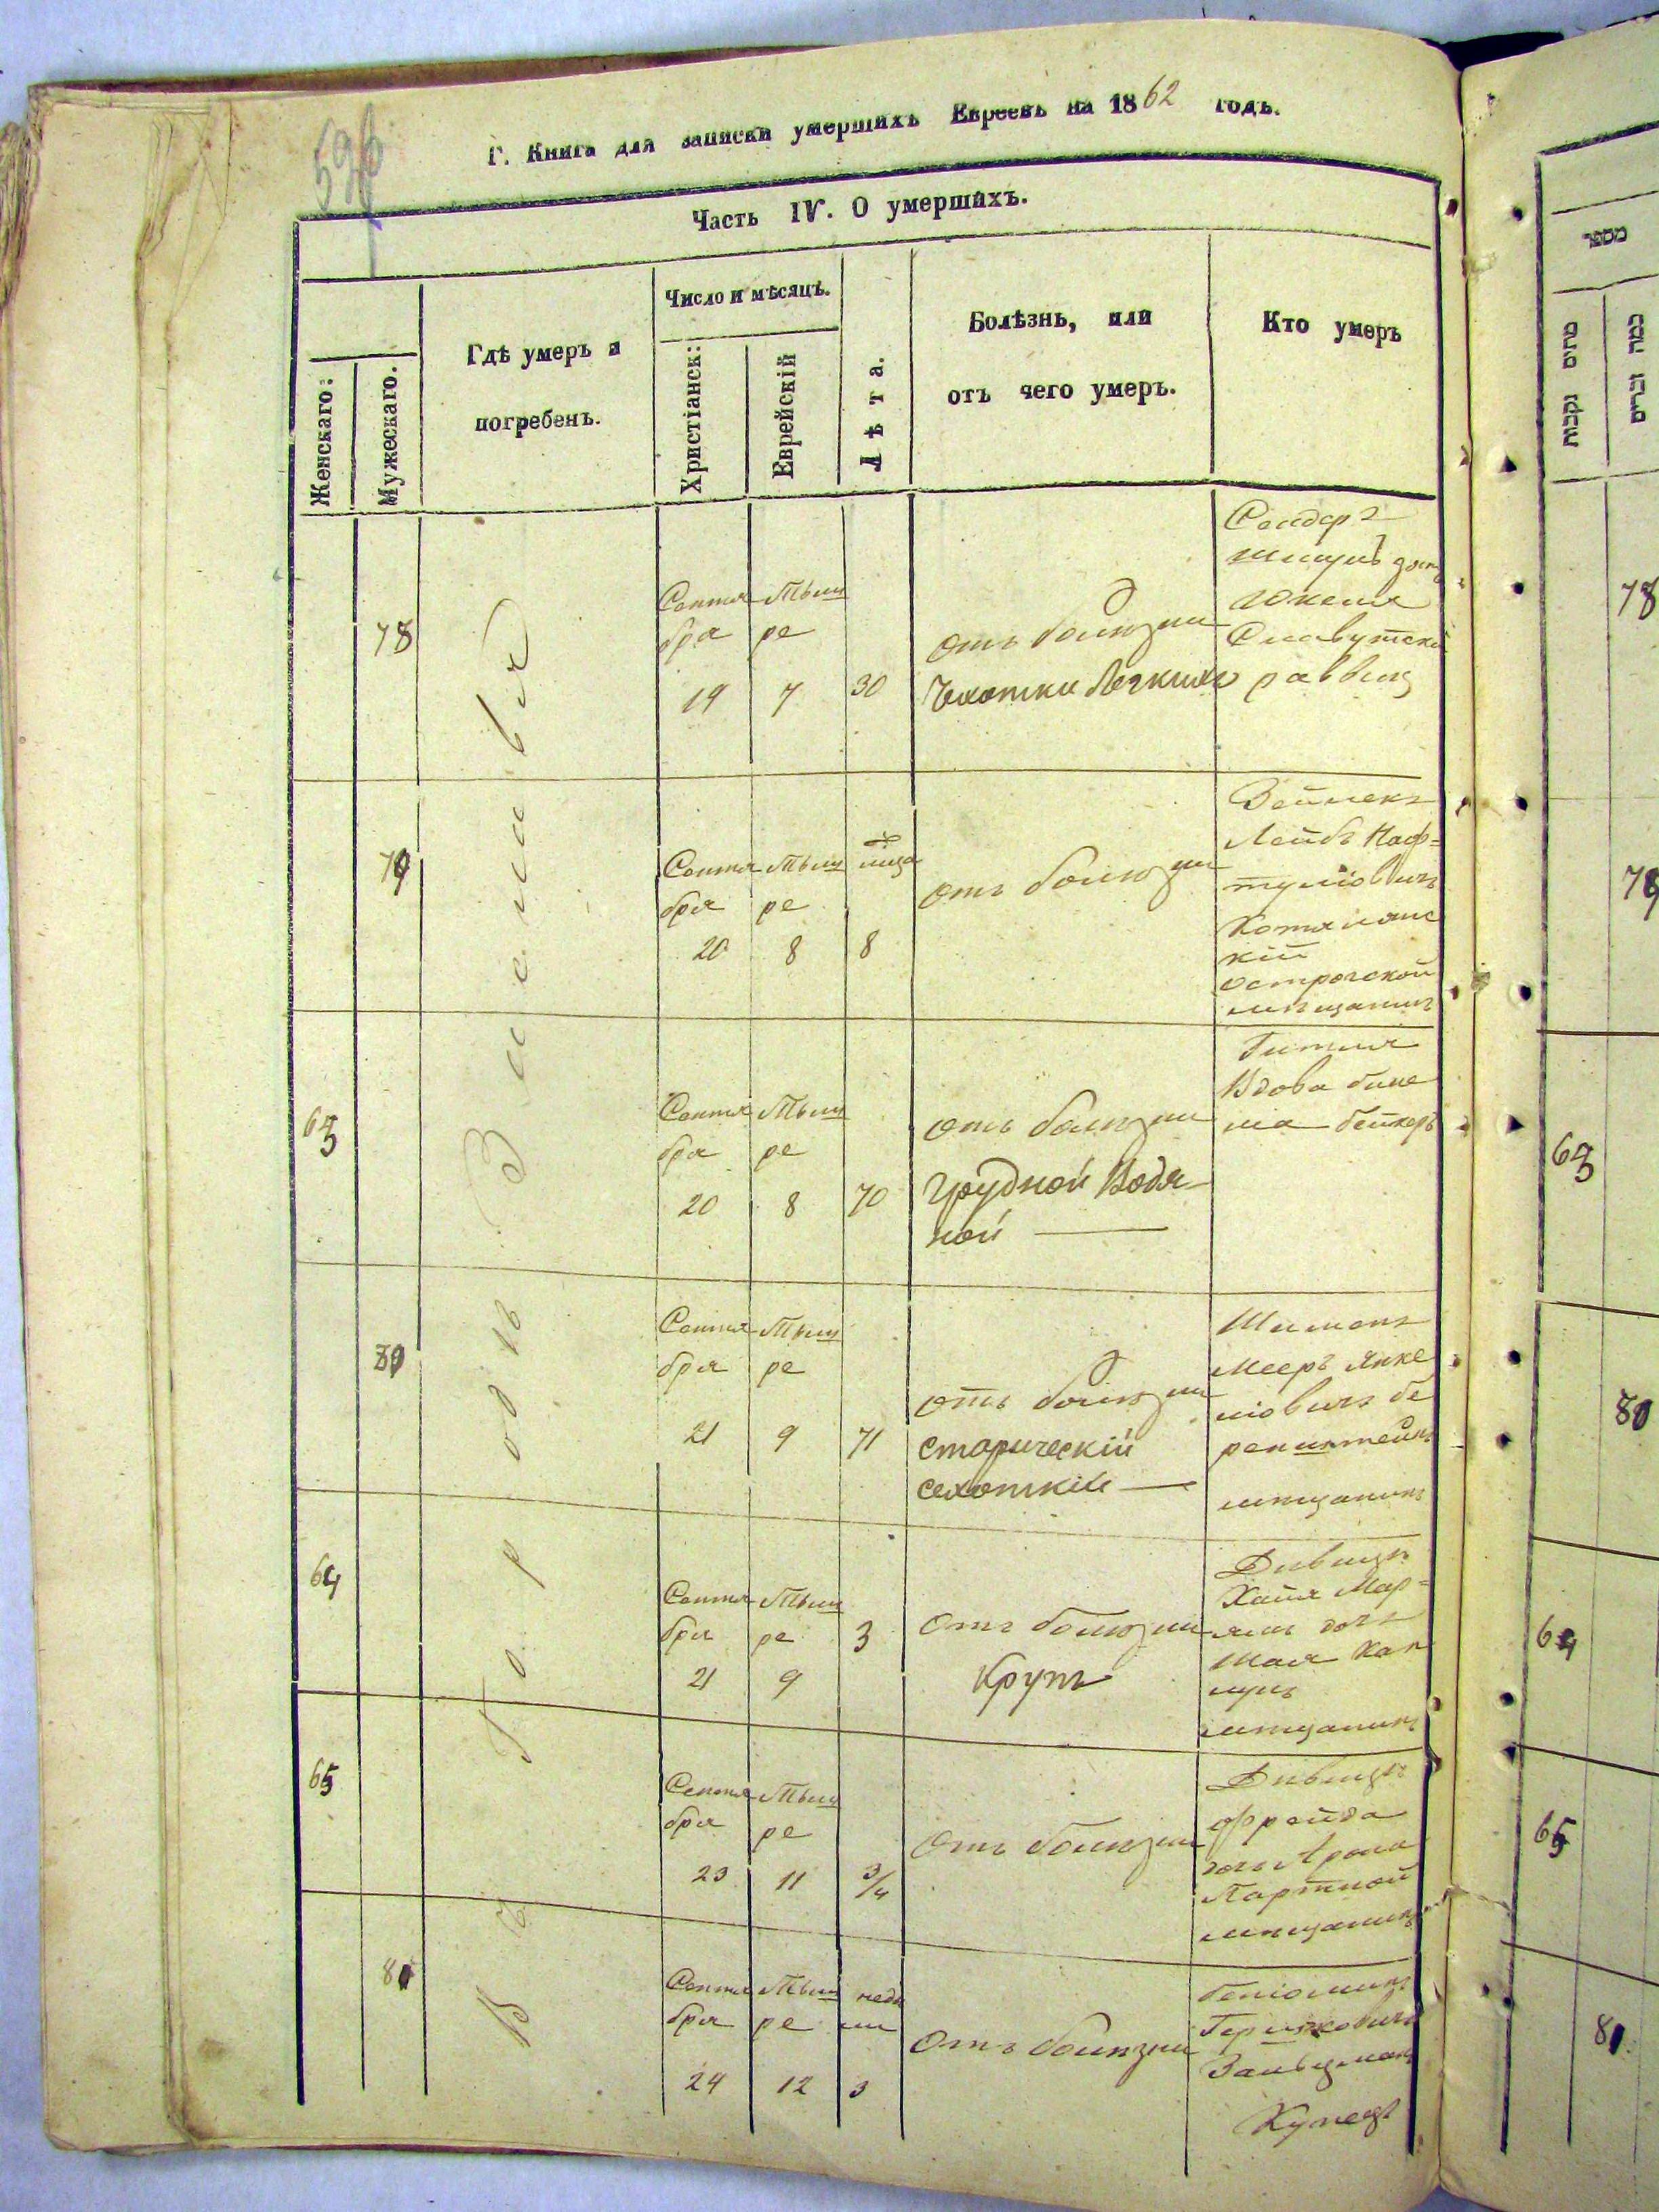 596
Г. Книга для записки умершихъ Евреевъ на 1862 годъ.
Часть IV. О умершихъ.
Женскаго:
Мужескаго.
Гдѣ умеръ и
погребенъ.
Число и мѣсяцъ.
Христіанск:
Еврейскій
Лѣта.
Болѣзнь, или
отъ чего умеръ.
Кто умеръ
מספר
מתים נקבות
כמה זכרים
Въ Городѣ Заславлѣ
78
Сентя
бря
19
Тыш
ре
7
30
отъ болѣзни
Чахотки Легкихъ
Сендеръ
Славутскій
раввинъ
78
79
Сентя
бря
20
Тыш
ре
8
8
отъ болѣзни
Зейлекъ
Лейбъ Наф=
туліовичъ
кій
острогской
мѣщанинъ
79
63
Сентя
бря
20
Тыш
ре
8
70
отъ болѣзни
грудной Водя
ной
Гитля
Вдова
63
80
Сентя
бря
21
Тыш
ре
9
71
отъ болѣзни
старическій
сахоткій
Шимонъ
Мееръ Янке
ліовичъ Бе
ренштейнъ
мѣщанинъ
80
64
Сентя
бря
21
Тыш
ре
9
3
отъ болѣзни
Крупъ
Дѣвица
Хая Мар=
ямъ дочь
Шая Кап
лунъ
мѣщанинъ
64
65
Сентя
бря
23
Тыш
ре
11
3/4
отъ болѣзни
Дѣвица
Фрейда
дочь Арона
Партной
мѣщанинъ
65
81
Сентя
бря
24
Тыш
ре
12
недѣ
ли
3
отъ болѣзни
Беніоминъ
Гершковичъ
Зальцманъ
Купецъ
81